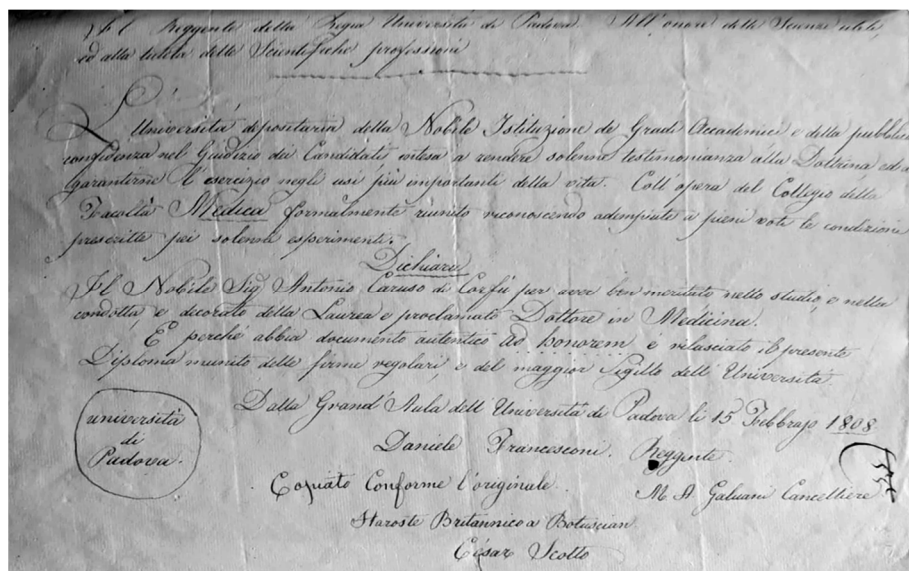 Il Reggente della Regia Università di Padova. All'onore delle Scienze utili
ed alla tutela delle Scientifiche professioni
L'Università depositaria della Nobile Istituzione de Gradi Accademici e della pubblica
confidenza nel Giudizio dei Candidati intesa a rendere solenne testimonianza alla Dottrina ed a
garantirne l'esercizio negli usi più importanti della vita. Coll'opera del Collegio della
Facoltà Medica formalmente riunito riconoscendo adempiute a pieni voti le condizioni
prescritte pei solenni esperimenti.
Dichiara
Il Nobile Sig Antonio Caruso di Corfù per aver ben meritato nello studio, e nella
condotta, e decorato della Laurea e proclamato Dottore in Medicina.
E perchè abbia documento autentico ad honorem e rilasciato il presente
Diploma munito delle firme regolari, e del maggior Sigillo dell'Università
Dalla Grand'Aula dell'Università di Padova li 15 Febbrajo 1808.
università
di
Padova.
Daniele Francesconi. Reggente.
M A Galvani Cancelliere
Copiato Conforme l'originale.
Staroste Britannico a Botuscian
César Scotto